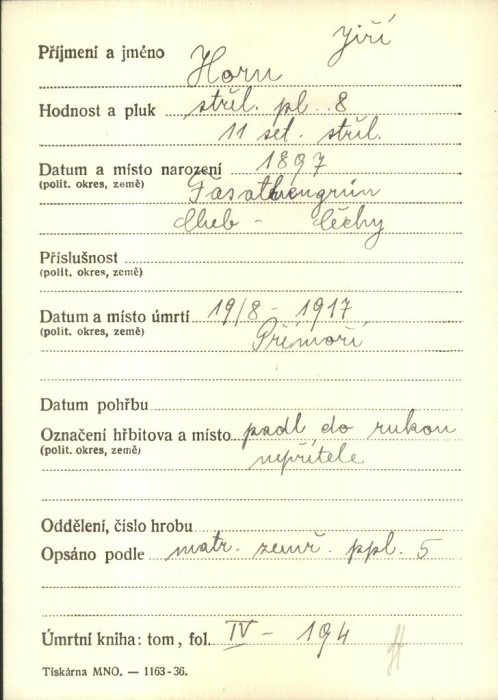 Jiří
Příjmení a jméno Horn
Hodnost a pluk střl. pl. 8
11 set. střl.
Datum a místo narození 1897
(polit. okres, země) Fasattengrün
Cheb - Čechy
Příslušnost
(polit. okres, země)
Datum a místo úmrtí 19/8 - 1917
(polit. okres, země) Přímoří
Datum pohřbu
Označení hřbitova a místo padl do rukou
(polit. okres, země) nepřítele
Oddělení, číslo hrobu
Opsáno podle matr. zemř. ppl. 5
Úmrtní kniha: tom, fol. IV - 194
Tiskárna MNO. — 1163-36.